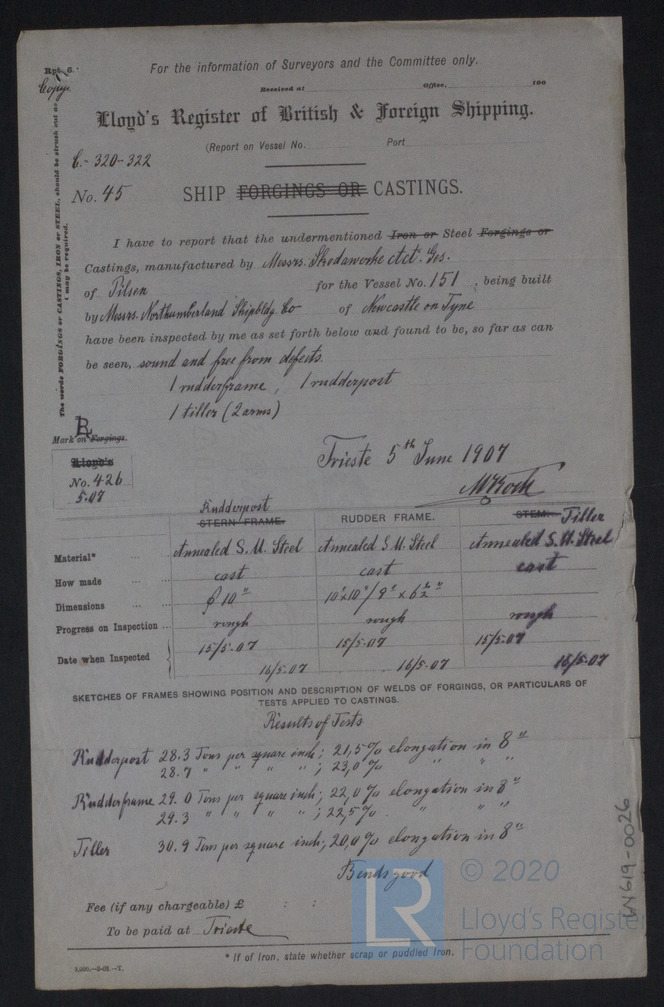 Rpt. 6.
Copy.
For the information of Surveyors and the Committee only.
Received at Office, 190
Lloyd's Register of British & Foreign Shipping.
(Report on Vessel No. Port
C.-320-322
No. 45
SHIP FORGINGS OR CASTINGS.
The words FORGINGS or CASTINGS, IRON or STEEL, should be struck out as
may be required.
I have to report that the undermentioned Iron or Steel Forgings or
Castings, manufactured by Messrs. Skodawerke Act. Ges.
of Pilsen for the Vessel No. 151, being built
by Messrs. Northumberland Shipbldg. Co of Newcastle on Tyne
have been inspected by me as set forth below and found to be, so far as can
be seen, sound and free from defects.
1 rudderframe, 1 rudderpost
1 tiller (2 arms)
Mark on Forgings.
Lloyd's
No. 426
5.07
Trieste 5th June 1907
Rudderpost
STERN FRAME.
RUDDER FRAME.
STEM. Tiller
Material* Annealed S.M. Steel Annealed S.M. Steel Annealed S.M. Steel
How made cast cast cast
Dimensions 10" 10"x10"/9" x 6½"
Progress on Inspection rough rough rough
Date when Inspected 15/5.07 15/5.07 15/5.07
16/5.07 16/5.07 16/5.07
SKETCHES OF FRAMES SHOWING POSITION AND DESCRIPTION OF WELDS OF FORGINGS, OR PARTICULARS OF
TESTS APPLIED TO CASTINGS.
Results of Tests
Rudderpost 28.3 Tons per square inch; 21,5% elongation in 8"
28.7 " " " " ; 23,0% " " "
Rudderframe 29.0 Tons per square inch; 22,0% elongation in 8"
29.3 " " " " ; 22,5% " " "
Tiller 30.9 Tons per square inch; 20,0% elongation in 8"
Bends good
Fee (if any chargeable) £ : :
To be paid at Trieste
* If of Iron, state whether scrap or puddled Iron.
LR
© 2020
Lloyd's Register
Foundation
W619-0026